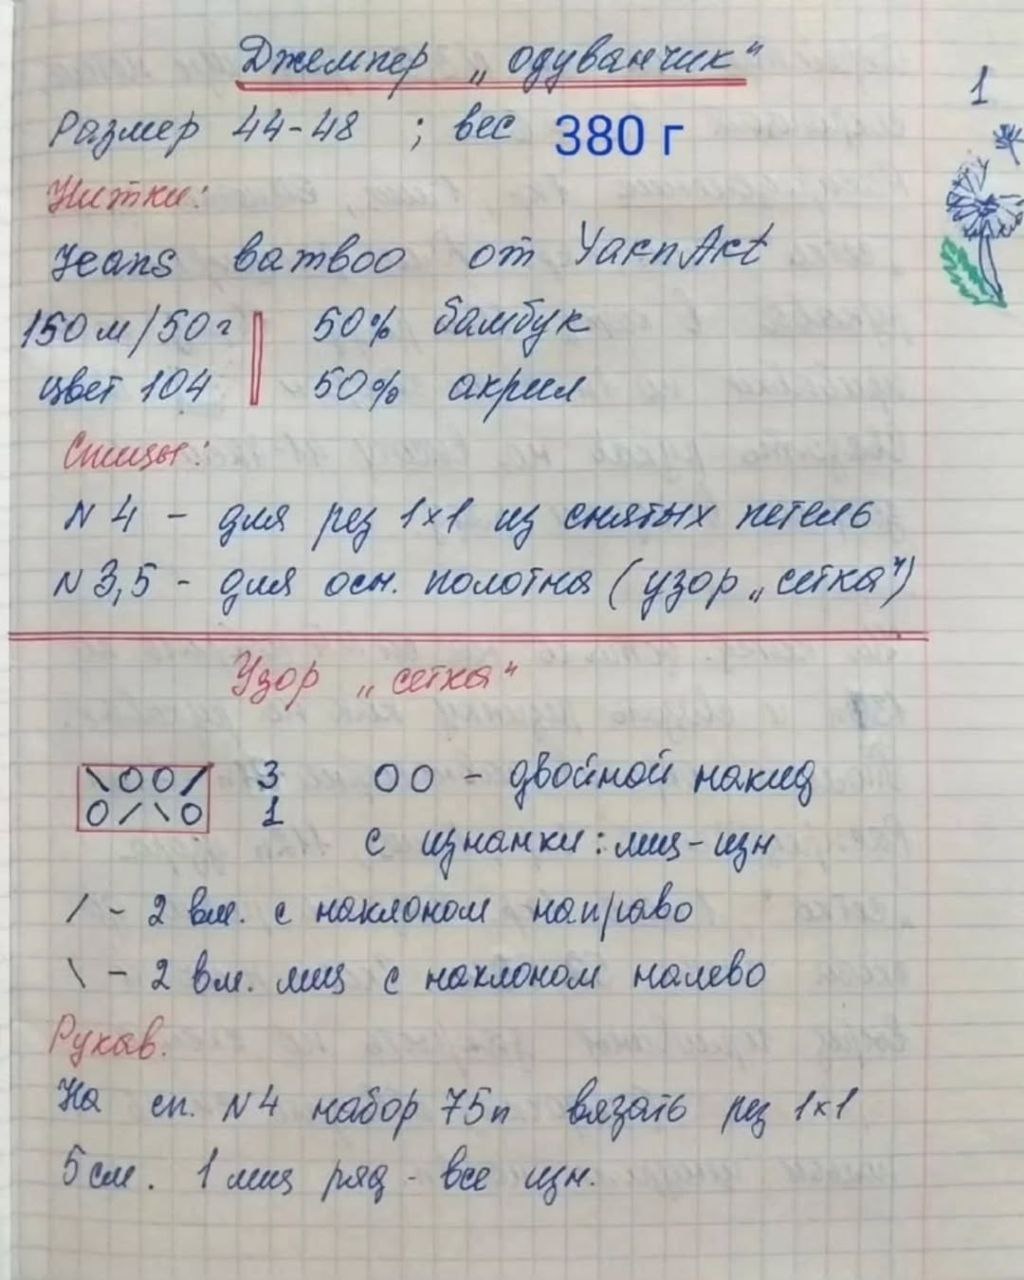 Джемпер „одуванчик"
1
Размер 44-48 ; вес 380 г
Нитки:
Jeans bamboo от YarnArt
150 м/50 г 50% бамбук
цвет 104 50% акрил
Спицы:
N 4 - для рез 1×1 из снятых петель
N 3,5 - для осн. полотна (узор „сетка")
Узор „сетка"
\OO/ 3 OO - двойной накид
O/\O 1
с изнанки: лиц-изн
/ - 2 вм. с наклоном направо
\ - 2 вм. лиц с наклоном налево
Рукав.
На сп. N 4 набор 75п вязать рез 1×1
5 см. 1 лиц ряд - все изн.